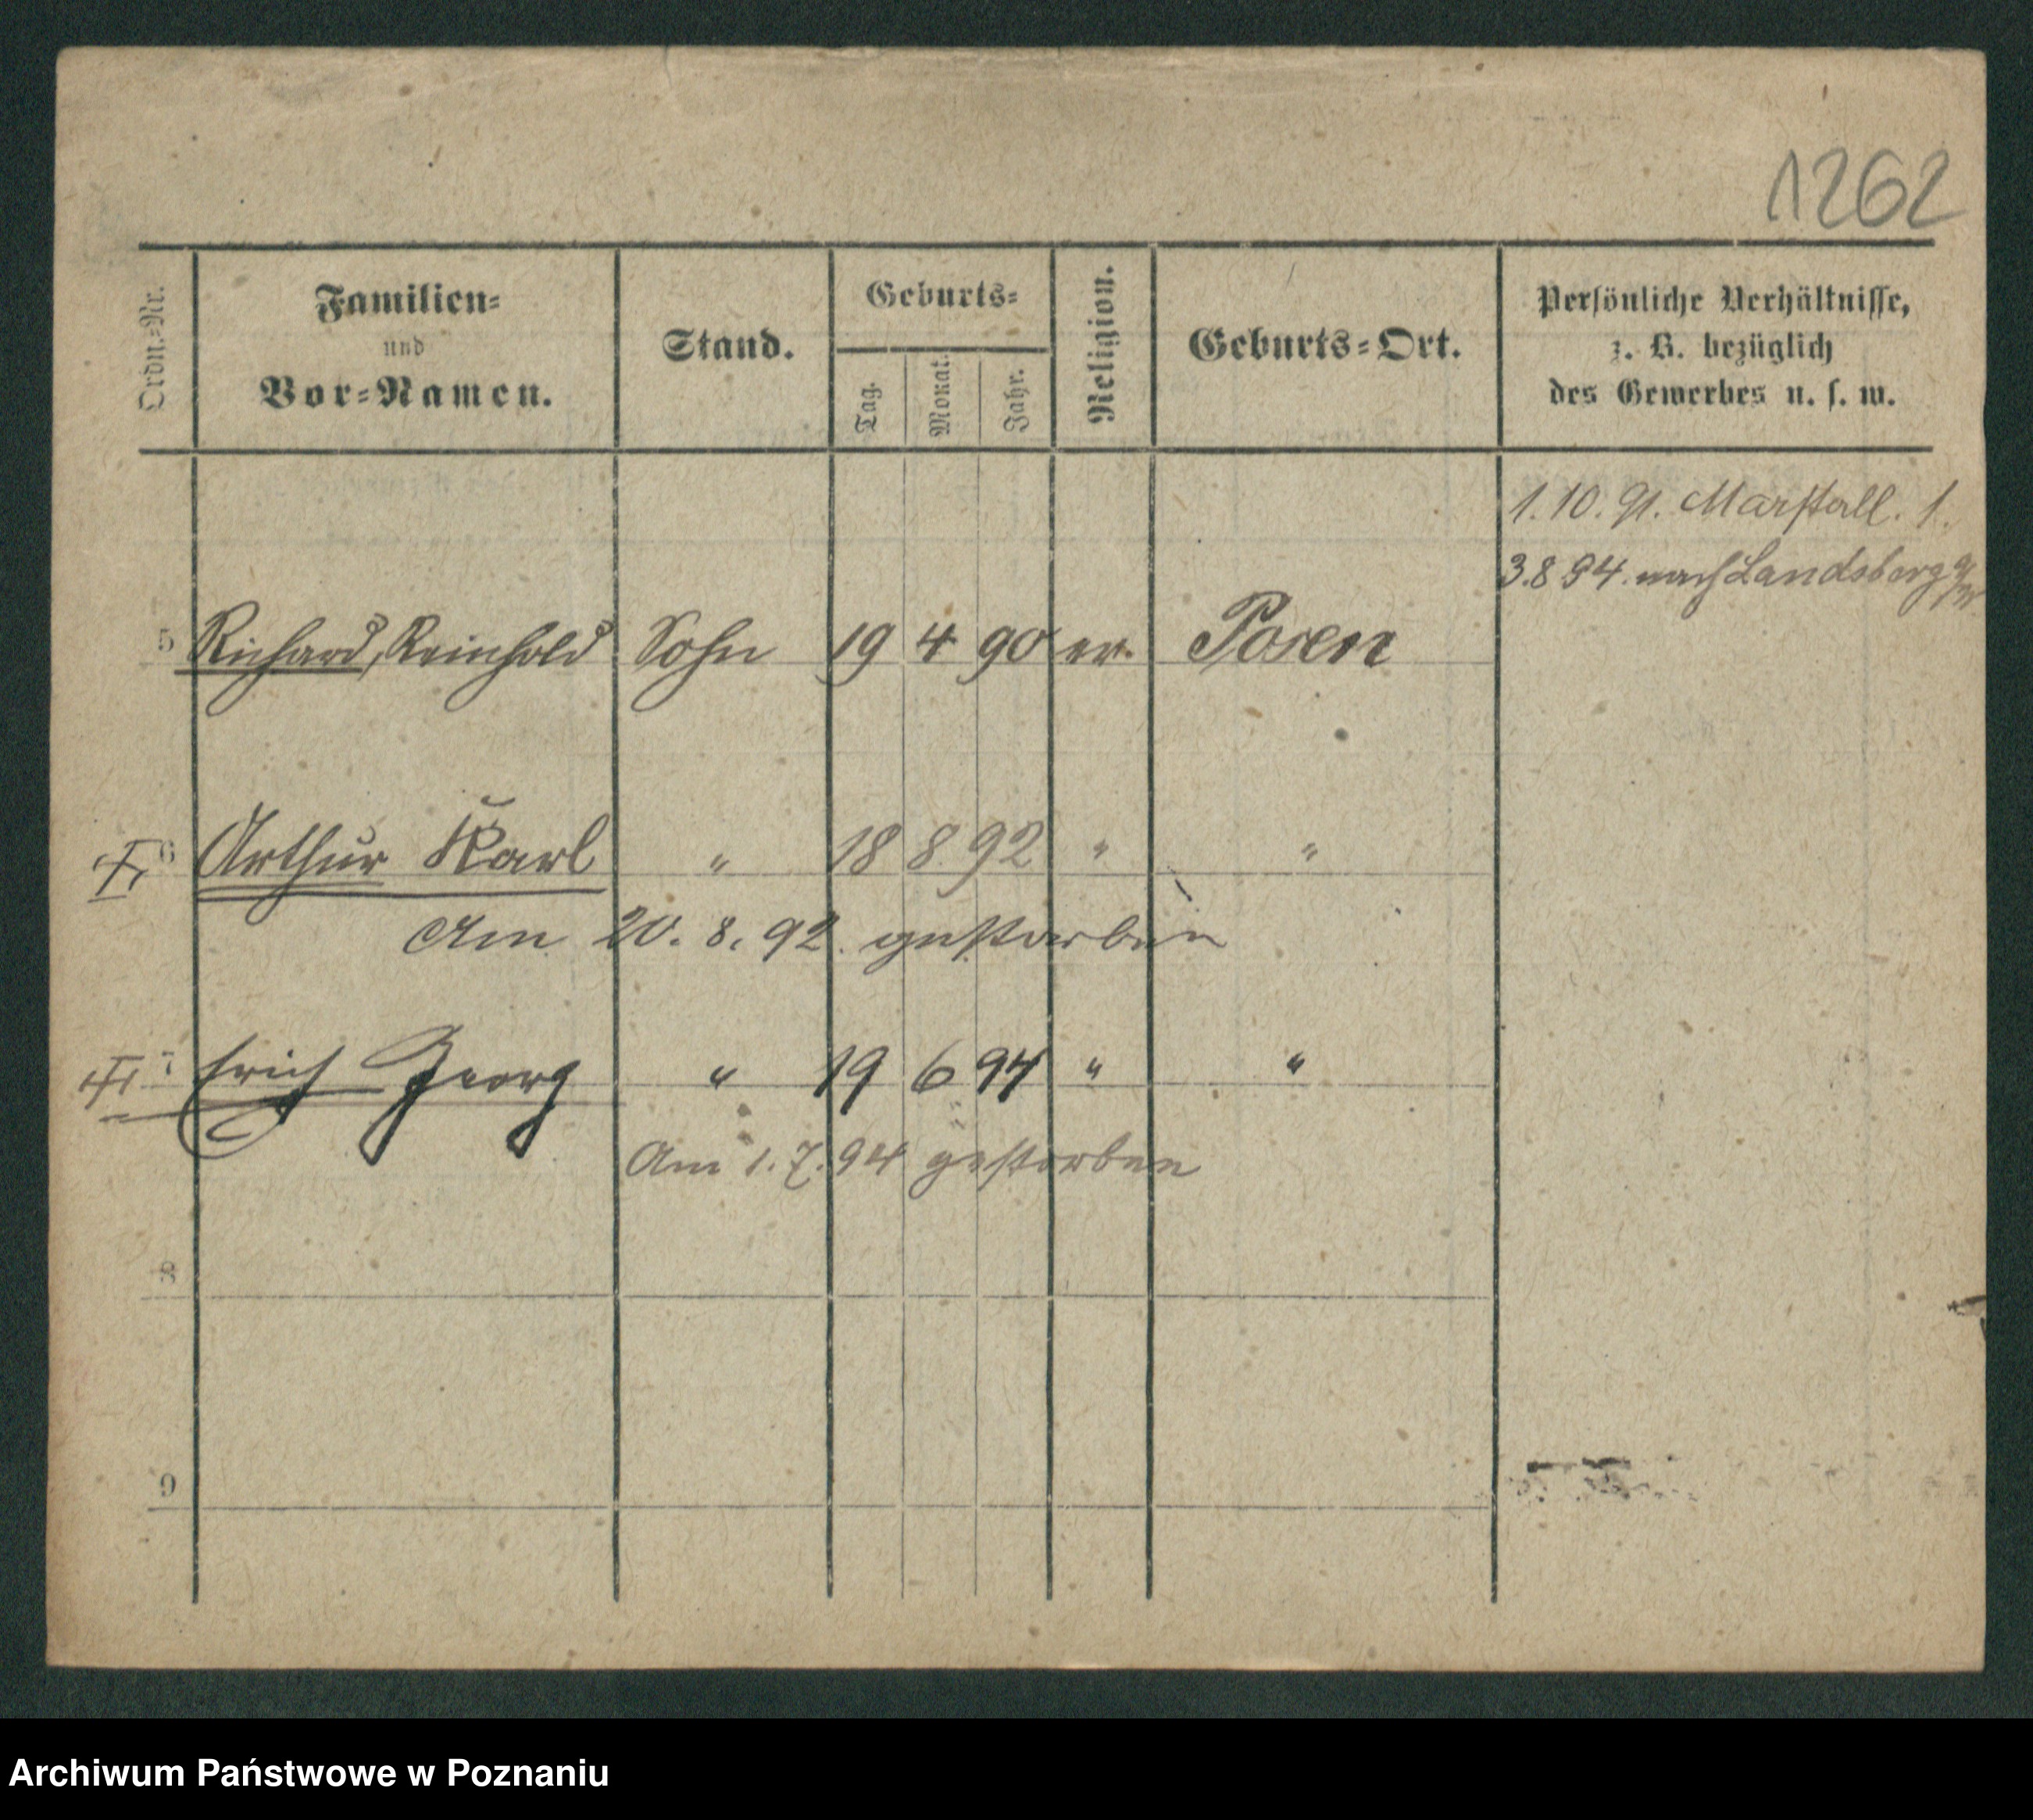 1262
Ordn.-Nr.
Familien-
und
Vor-Namen.
Stand.
Geburts-
Tag.
Monat.
Jahr.
Religion.
Geburts-Ort.
Persönliche Verhältnisse,
z. B. bezüglich
des Gewerbes u. s. w.
1.10.91. Marstall. 1.
3.8 94. nach Landsberg a/W
5 Richard, Reinhold Sohn 19 4 90 ev. Posen
6 Arthur Karl " 18 8 92 " "
Am 20. 8. 92. gestorben
7 Erich Georg " 19 6 94 " "
Am 1. 7. 94 gestorben
8
9
Archiwum Państwowe w Poznaniu